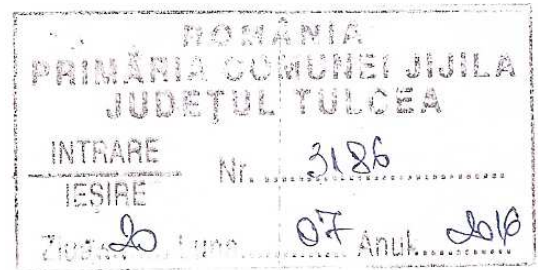 ROMÂNIA
PRIMĂRIA COMUNEI JIJILA
JUDEŢUL TULCEA
INTRARE
IEŞIRE
Nr. 3186
Ziua 20 Luna 07 Anul 2016